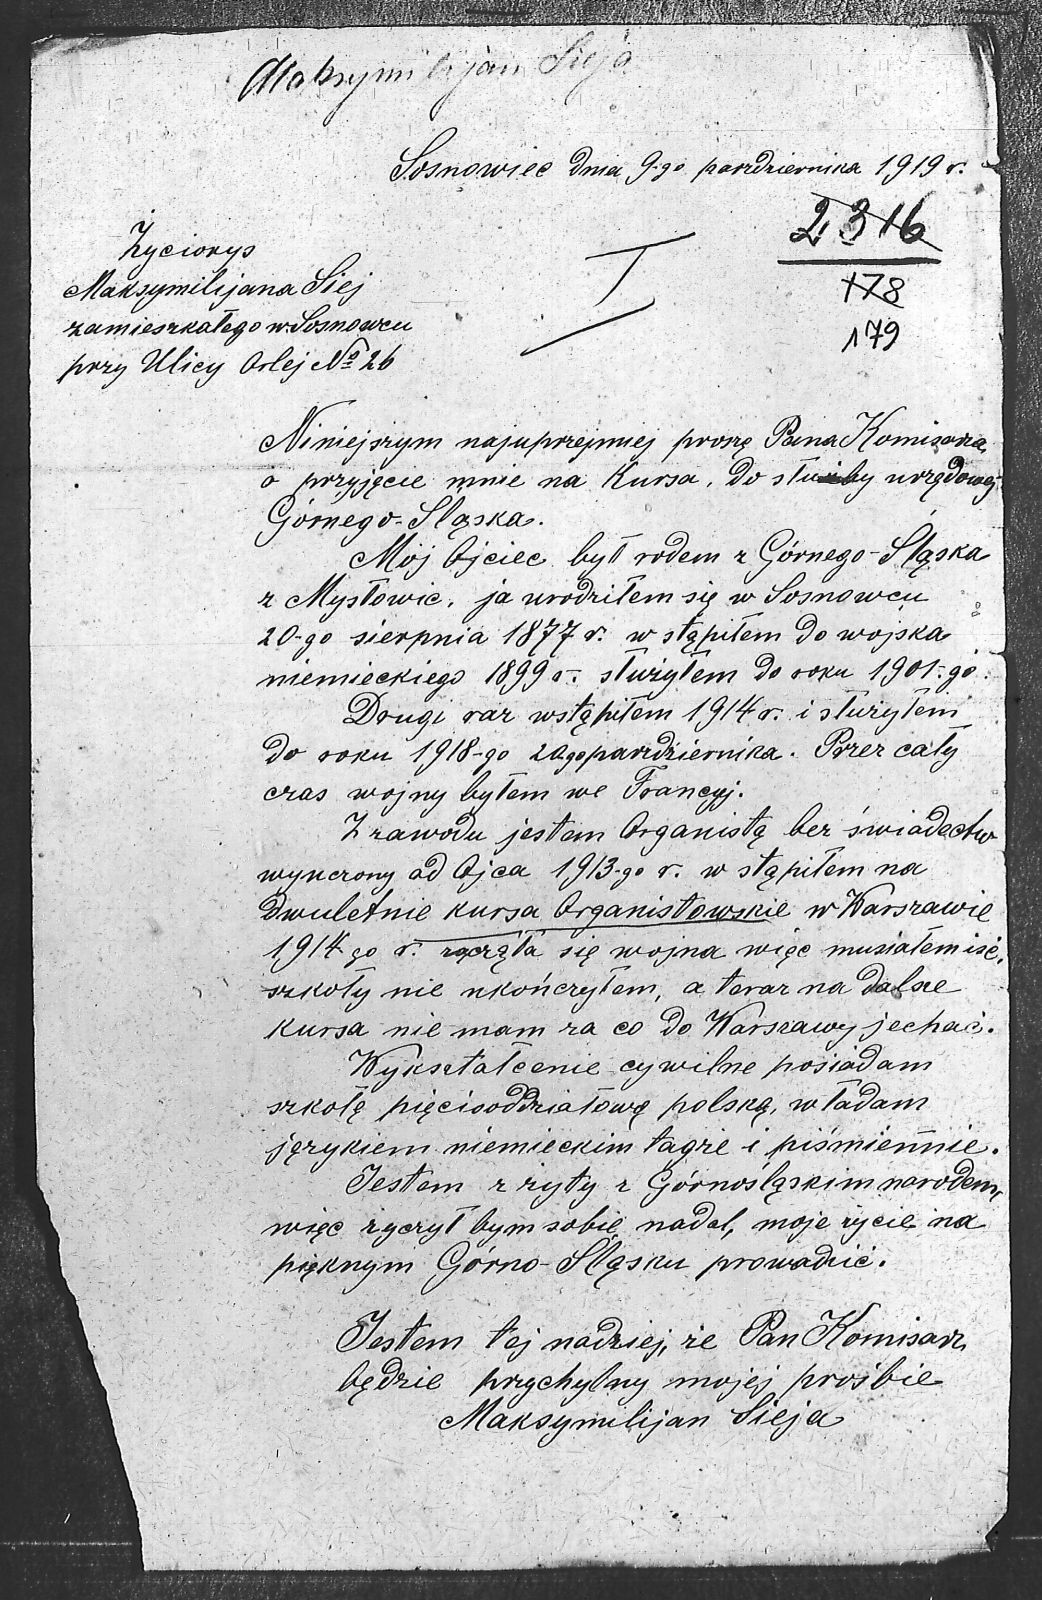 Maksymilijan Sieja
Sosnowiec dnia 9-go pazdziernika 1919 r.
2316
178
179
I
Życiorys
Maksymilijana Siej
zamieszkałego w Sosnowcu
przy Ulicy Orlej № 26
Niniejszym najuprzejmiej proszę Pana Komisarza,
o przyjęcie mnie na Kursa, do służby urzędowej
Górnego-Śląska.
Mój Ojciec był rodem z Górnego-Śląska
z Mysłowic, ja urodziłem się w Sosnowcu
20-go sierpnia 1877 r. w stąpiłem do wojska
niemieckiego 1899 r. służyłem do roku 1901-go.
Drugi raz wstąpiłem 1914 r. i służyłem
do roku 1918-go 20go pazdziernika. Przez cały
czas wojny byłem we Francyj.
Z zawodu jestem Organistą bez świadectw
wyuczony od Ojca 1913-go r. w stąpiłem na
dwuletnie kursa Organistowskie w Warszawie
1914-go r. zaczęła się wojna więc musiałem iść,
szkoły nie ukończyłem, a teraz na dalsze
kursa nie mam za co do Warszawy jechać.
Wykształcenie cywilne posiadam
szkołę pięciooddziałową polską, władam
językiem niemieckim także i piśmiennie.
Jestem z żyty z Górnośląskim narodem,
więc życzył bym sobie nadal, moje życie na
pięknym Górno-Śląsku prowadzić.
Jestem tej nadziej, że Pan Komisarz,
będzie przychylny mojej prośbie
Maksymilijan Sieja